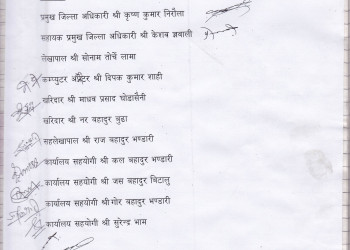 प्रमुख जिल्ला अधिकारी श्री कृष्ण कुमार निरौला
सहायक प्रमुख जिल्ला अधिकारी श्री केशव ज्ञवाली
लेखापाल श्री सोनाम तोर्चे लामा
कम्प्युटर अपरेटर श्री दिपक कुमार शाही
खरिदार श्री माधव प्रसाद घोडासैनी
खरिदार श्री नर बहादुर बुढा
सहलेखापाल श्री राज बहादुर भण्डारी
कार्यालय सहयोगी श्री कल बहादुर भण्डारी
कार्यालय सहयोगी श्री जस बहादुर बिटालु
कार्यालय सहयोगी श्री गोर बहादुर भण्डारी
कार्यालय सहयोगी श्री सुरेन्द्र भाम